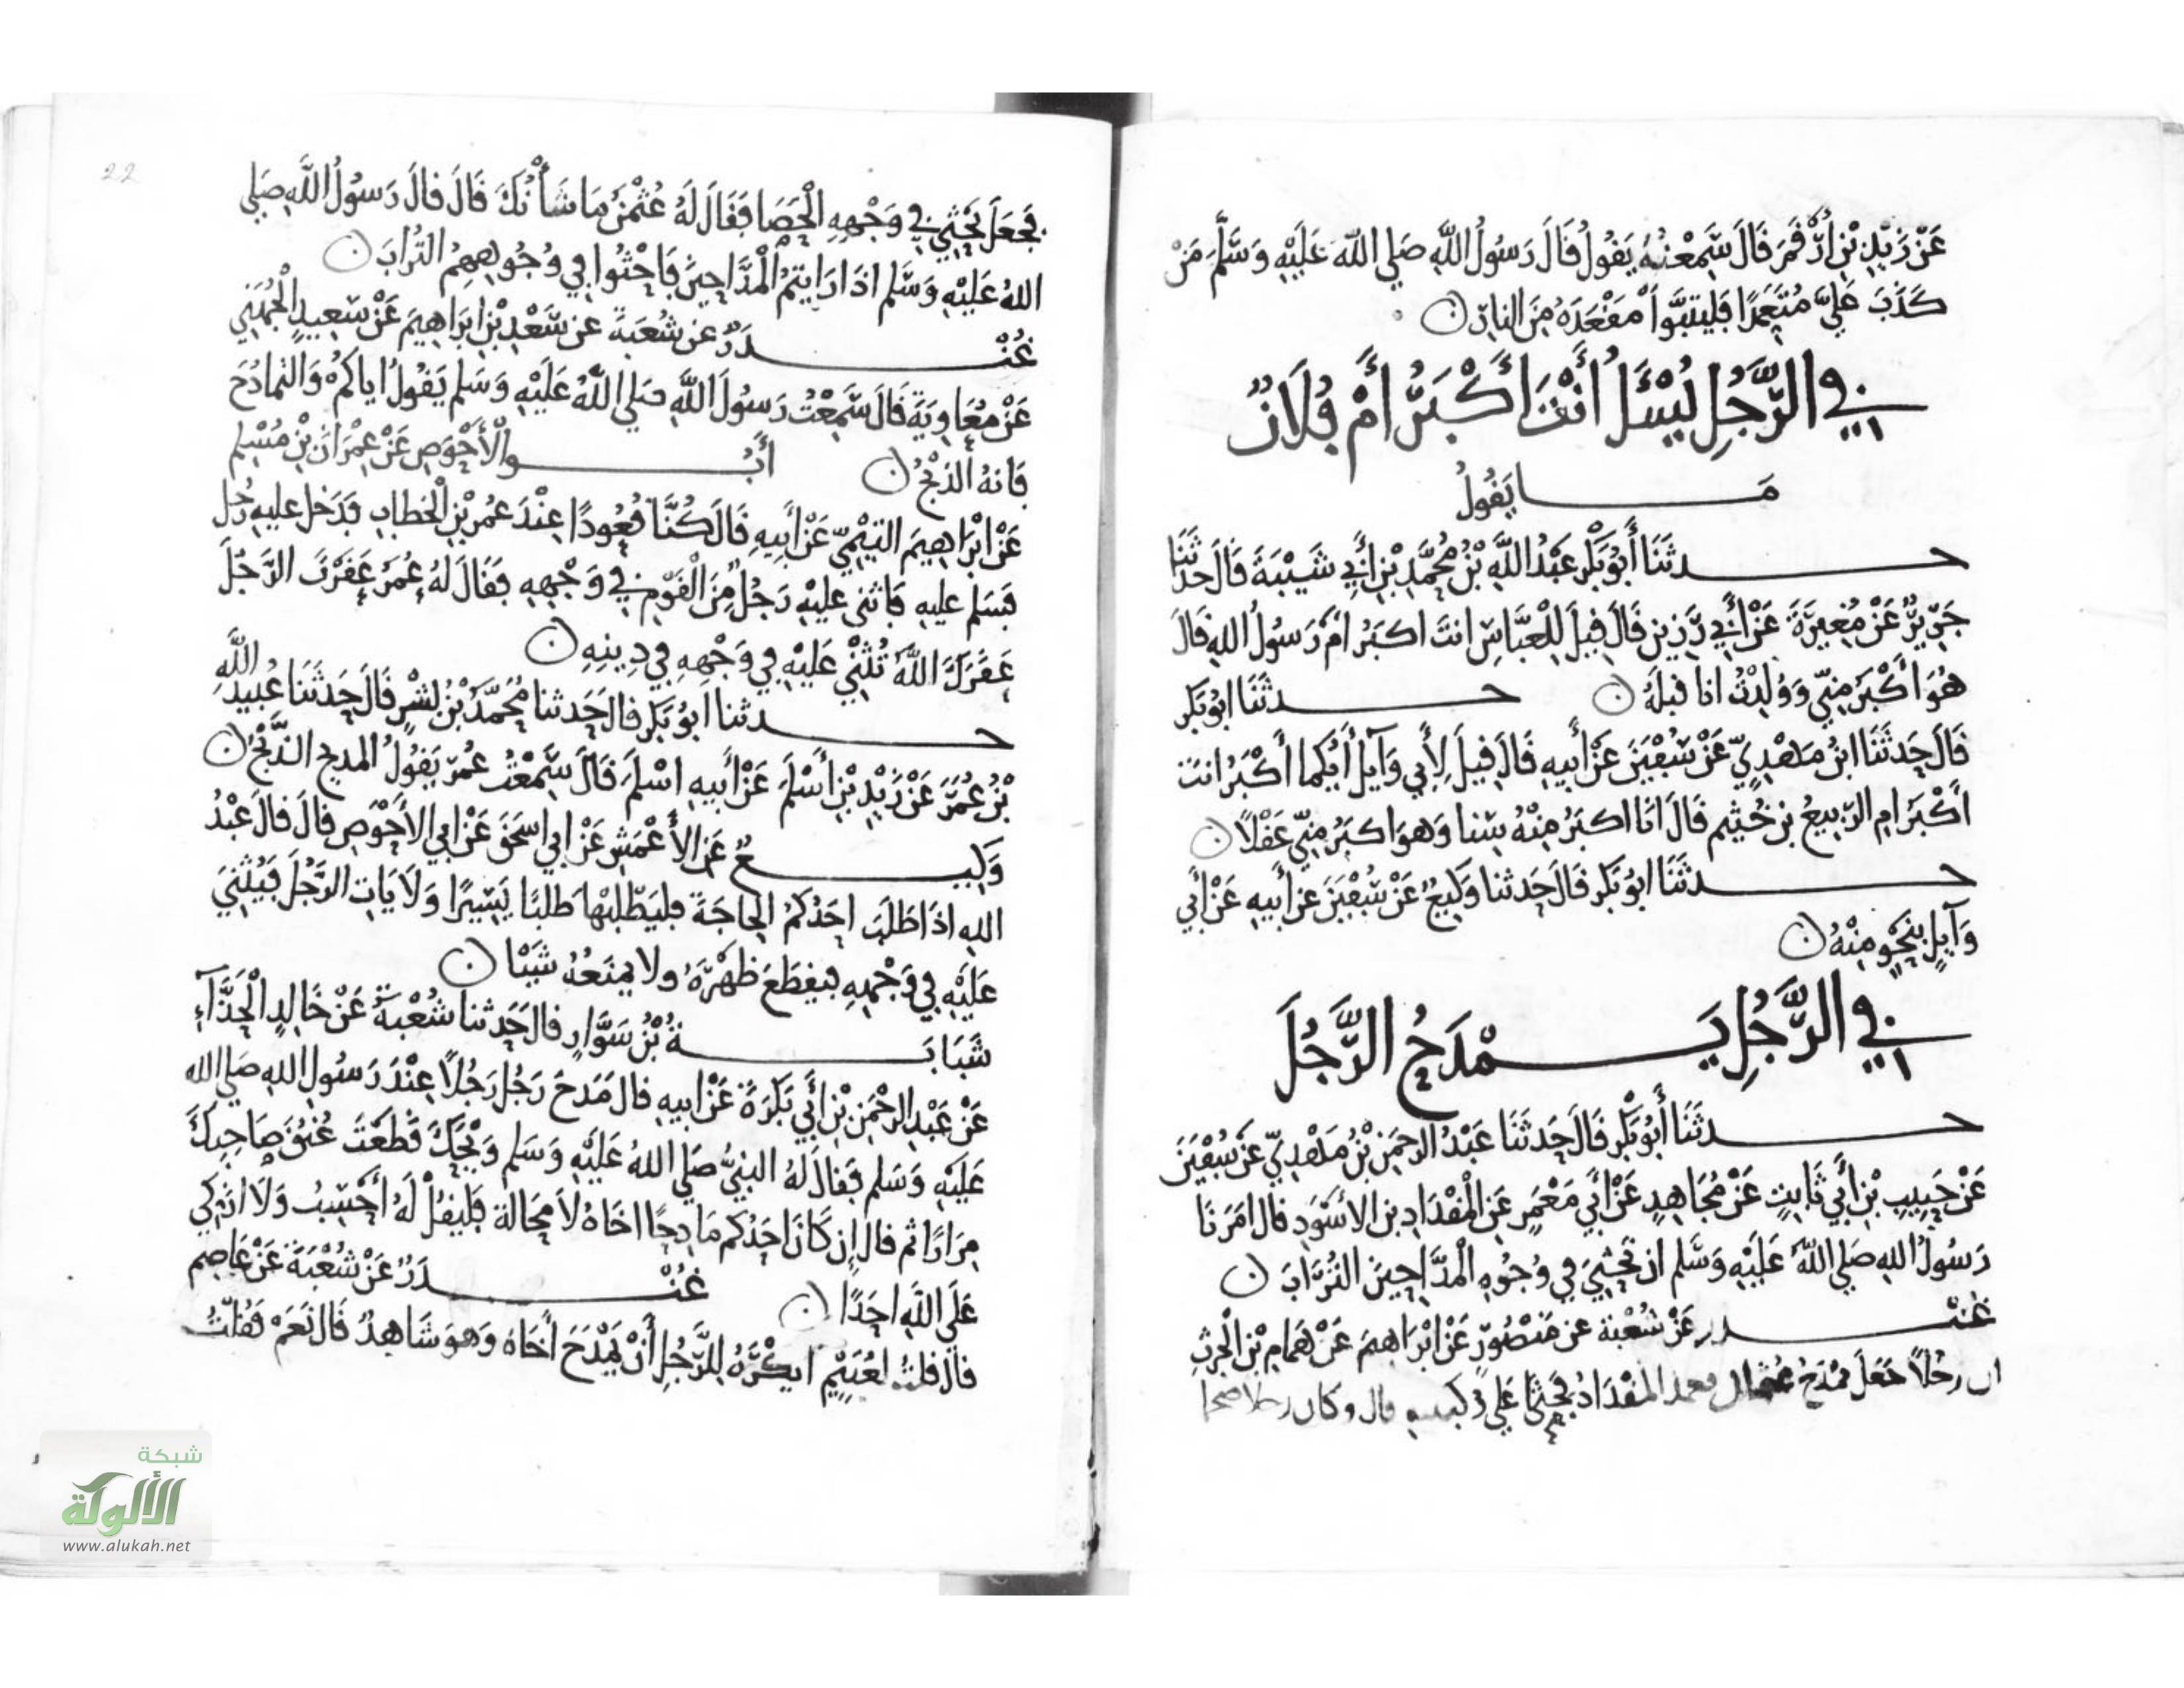 عَنْ زَيْدِ بْنِ أَرْقَمَ قَالَ سَمِعْتُهُ يَقُولُ قَالَ رَسُولُ اللَّهِ صَلي اللَّه عَلَيْهِ وَسَلَّمَ مَنْ
كَذَبَ عَلَيَّ مُتَعَمِّدًا فَليتبَوَّأْ مَقْعَدَهُ مِنَ النارِ
في الرَّجُلِ يُسْئَلُ أَنْتَ أَكْبَرُ أَمْ فُلَانٌ
مَا يَقُولُ
حدثَنَا أَبُو بَكْرٍ عَبْدُ اللَّهِ بْنُ مُحَمَّدِ بْنِ أَبِي شَيْبَةَ قَالَ حَدثَنَا
جَرِيرٌ عَنْ مُغِيرَةَ عَنْ أَبِي رَزِينٍ قَالَ قِيلَ لِلْعَبَّاسِ انتَ اكبَرُ امْ رَسُولُ اللهِ قالَ
هُوَ أَكْبَرُ مِنِّي وَوُلِدْتُ انا قبلَهُ حدثَنَا ابُو بَكر
قَالَ حَدثَنَا ابْنُ مَهْدِيٍّ عَنْ سُفْيَنَ عَنْ أَبِيهِ قَالَ قِيلَ لِأَبِي وَآيِلٍ أَيُّكما أَكْبَرُ انتَ
أَكْبَرُ امِ الرَّبِيعُ بن خُثيم قَالَ انَا اكبَرُ مِنْهُ سِنا وَهوَ اكبَرُ مِنِّي عَقْلًا
حدثَنَا ابُو بَكر قَالَ حَدثنا وَكِيعٌ عَنْ سُفْيَنَ عن أَبيهِ عَنْ أَبِي
وَآيِلٍ بِنَحْوٍ مِنْهُ
في الرَّجُلِ يَمْدَحُ الرَّجُلَ
حدثَنَا أَبُو بَكْرٍ قَالَ حَدثَنَا عَبْدُ الرحْمَنِ بْنُ مَهْدِيٍّ عَنْ سُفْيَنَ
عَنْ حَبِيبِ بْنِ أَبِي ثَابِتٍ عَنْ مُجَاهِدٍ عَنْ أَبِي مَعْمَرٍ عَنِ الْمِقْدَادِ بن الأَسْوَدِ قال امَرَنَا
رَسُولُ اللهِ صَلي اللَّهُ عَلَيْهِ وَسَلم ان نَحْثِيَ فِي وُجُوهِ الْمَدَّاحِينَ التُّرَابَ
غُنْدَر عَنْ شُعْبَة عن مَنْصُورٍ عَنْ ابْرَاهِيمَ عَنْ هَمامِ بْنِ الْحرثِ
ان رجُلًا جَعَلَ يَمْدَحُ عُثمان فعمد المقْدَادُ فجَثَا عَلي رُكبتيهِ قال وكان رجلا ضخما
فَجَعَلَ يَحْثِي في وَجْهِهِ الْحَصَا فَقَالَ لَهُ عُثْمَنُ مَا شَأْنُكَ قَالَ قالَ رَسُولُ اللَّهِ صَلي
اللهُ عَلَيْهِ وَسَلم اذَا رَايتمُ الْمَدَّاحِينَ فَاحْثُوا فِي وُجُوهِهِمُ التُّرَابَ
غُنْدَرٌ عن شُعبَةَ عن سَعْدِ بْنِ ابْرَاهِيمَ عَنْ سَعِيدٍ الْجُهَنِي
عَنْ مُعَاوِيَةَ قَالَ سَمِعْتُ رَسُولَ اللَّهِ صَلي اللَّهُ عَلَيْهِ وَسَلم يَقُولُ اياكُم وَالتمادُحَ
فَانهُ الذبْحُ أَبُو الْأَحْوَصِ عَنْ عِمْرَانَ بْنِ مُسْلِم
عَنْ ابْرَاهِيمَ التيْمِيِّ عَنْ أَبِيهِ قَالَ كُنَّا قُعُودًا عِنْدَ عُمَر بْنِ الْخَطابِ فَدَخَل عليهِ رَجُل
فَسَلم عليهِ فَاثنى عليْهِ رَجُلٌ مِنَ الْقَوْمِ في وَجْهِهِ فَقَالَ لَهُ عُمَرُ عَقَرْتَ الرَّجُلَ
عَقَرَكَ اللَّهُ تُثْنِي عَلَيْهِ فِي وَجْهِهِ فِي دِينِهِ
حدثنا ابُو بَكر قالَ حَدثنا مُحَمَّدُ بْنُ بِشْرٍ قَالَ حَدثَنَا عُبَيد اللَّهِ
بْنُ عُمَرَ عَنْ زَيْدِ بْنِ أَسْلَمَ عَنْ أَبيهِ اسْلَمَ قَالَ سَمِعْتُ عُمَرَ يَقُولُ المدح الذَّبْحُ
وَكِيعٌ عَنِ الأَعْمَشِ عَنْ ابي اسحَقَ عَنْ ابي الأَحْوَصِ قالَ قالَ عَبْدُ
اللهِ اذَا طَلَبَ احَدُكُمُ الحاجَةَ فليَطْلبْهَا طلبًا يَسِيرًا وَلَا يَاتِ الرَّجُلَ فَيُثْنِيَ
عَلَيْهِ فِي وَجْهِهِ فيقطعَ ظهْرَهُ ولا يمنَعُهُ شَيْا
شَبَابَةُ بْنُ سَوَّارٍ قالَ حَدثنا شُعْبَةُ عَنْ خَالِدٍ الْحَذَّآءِ
عَنْ عَبْدِ الرَّحْمَنِ بْنِ أَبِي بَكْرَةَ عَنْ ابيهِ قالَ مَدَحَ رَجُلٌ رَجُلًا عِنْدَ رَسُولِ اللهِ صَلي الله
عَلَيْهِ وَسَلم فَقالَ لهُ النبيُّ صَلي اللهُ عَلَيْهِ وَسَلم وَيْحَكَ قَطَعْتَ عُنُقَ صَاحِبِكَ
مِرَارًا ثم قال إِن كَانَ احَدُكم مَادِحًا اخَاهُ لَا مَحَالة فَليقُلْ لَهُ أَحْسِبُ وَلَا ازكي
عَلَي اللَّهِ احَدًا غُنْدَرٌ عَنْ شُعْبَةَ عَنْ عَاصِم
قال قلتُ لعُتَيِّم ايكْرَهُ لِلرَّجُلِ أَنْ يَمْدَحَ أَخَاهُ وَهوَ شَاهِدٌ قَالَ نَعَمْ فَقُلْتُ
22
شبكة
الألوكة
www.alukah.net